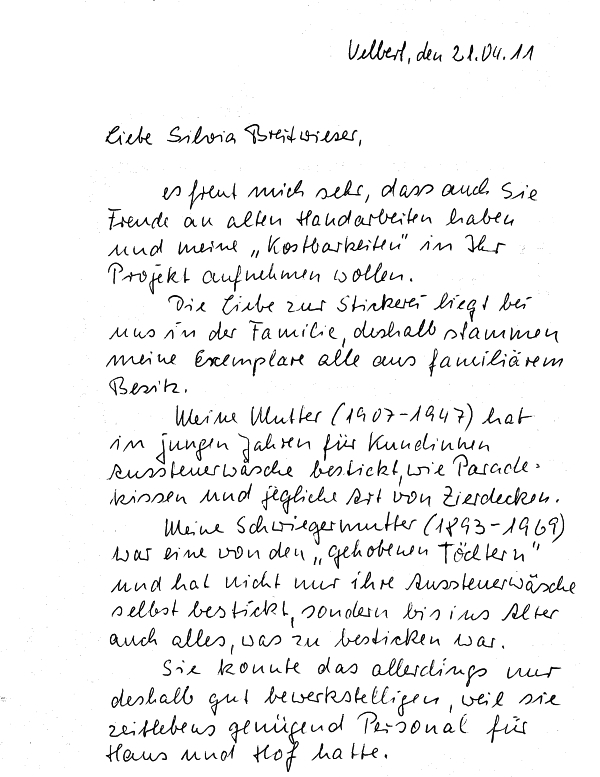 Velbert, den 21.04.11
Liebe Silvia Breitwieser,
es freut mich sehr, dass auch Sie
Freude an alten Handarbeiten haben
und meine „Kostbarkeiten" in Ihr
Projekt aufnehmen wollen.
Die Liebe zur Stickerei liegt bei
uns in der Familie, deshalb stammen
meine Exemplare alle aus familiärem
Besitz.
Meine Mutter (1907-1947) hat
in jungen Jahren für Kundinnen
Aussteuerwäsche bestickt, wie Parade-
kissen und jegliche Art von Zierdecken.
Meine Schwiegermutter (1893-1969)
war eine von den „gehobenen Töchtern"
und hat nicht nur ihre Aussteuerwäsche
selbst bestickt, sondern bis ins Alter
auch alles, was zu besticken war.
Sie konnte das allerdings nur
deshalb gut bewerkstelligen, weil sie
zeitlebens genügend Personal für
Haus und Hof hatte.